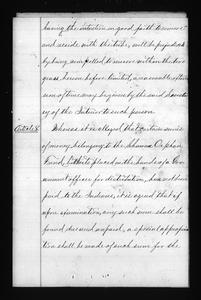 having the intention in good faith to remove to
and reside with the tribe, will be prejudiced
by being compelled to remove within the two
years, herein before limited, a reasonable extension
of time may be given by the said Secretary
of the Interior to such person.
Article 8. Whereas it is alleged, that certain sums
of money, belonging to the Shawnee Orphan
Fund, hitherto placed in the hands of a Gov-
ernment officer for distribution, have not been
paid to the Indians, it is agreed that if
upon examination, any such sum shall be
found due and unpaid, a special appropria-
tion shall be made of such sums for the